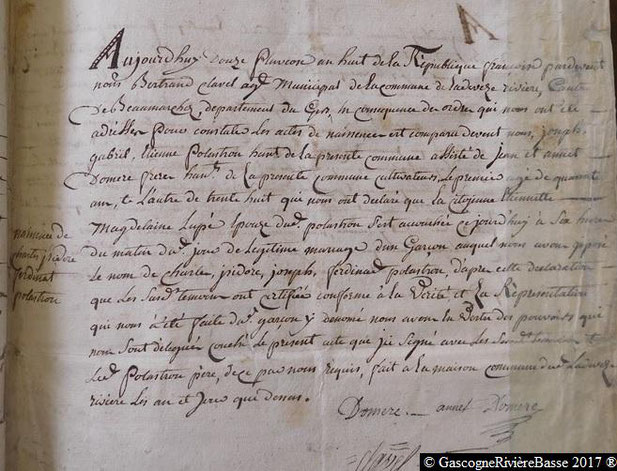 A
Aujourdhuy Douze Pluviose an huit de la République française pardevant
nous Bertrand Clavel agt Municipal de la commune de ladeveze riviere, Canton
De Beaumarchez, departement du Gers, en consequence des ordre qui nous ont été
adressées pour constater les actes de naissence est compara devent nous, joseph
gabriel, Etienne Polastron habnt de la presente commune assisté de jean et annet
Domere frerer habnt de la presente commune cultivateurs, le premier agé de quarant
am, et l'autre de trente huit qui nous ont declaré que la citoyene
Magdelaine Lupé Epouze dud. polastron s'est accouchée cejourdhuy à Six heures
du matin dud. jour de Legitime mariage d'un Garçon auquel nous avons
naissence de
charles isidore
ferdinat
polastron
Le nom de charle, isidore, joseph, ferdinand polastron, d'apres cette declaration
que Les Susd. temoins ont certifiée conforme à la Verité et La Représentation
qui nous à eté faite du d. garçon y denomé nous avons En Vertu des pouvoirs qui
nous Sont delegués couché Le present acte que j'ai Signé avec Les Susd. temoins et
Led. Polastron père, de ce par nous requis, fait a la maison commune dud. Ladeveze
riviere Les an et Jour que dessus.
Domere. annet Domere
Clavel
© GascogneRivièreBasse 2017 ®